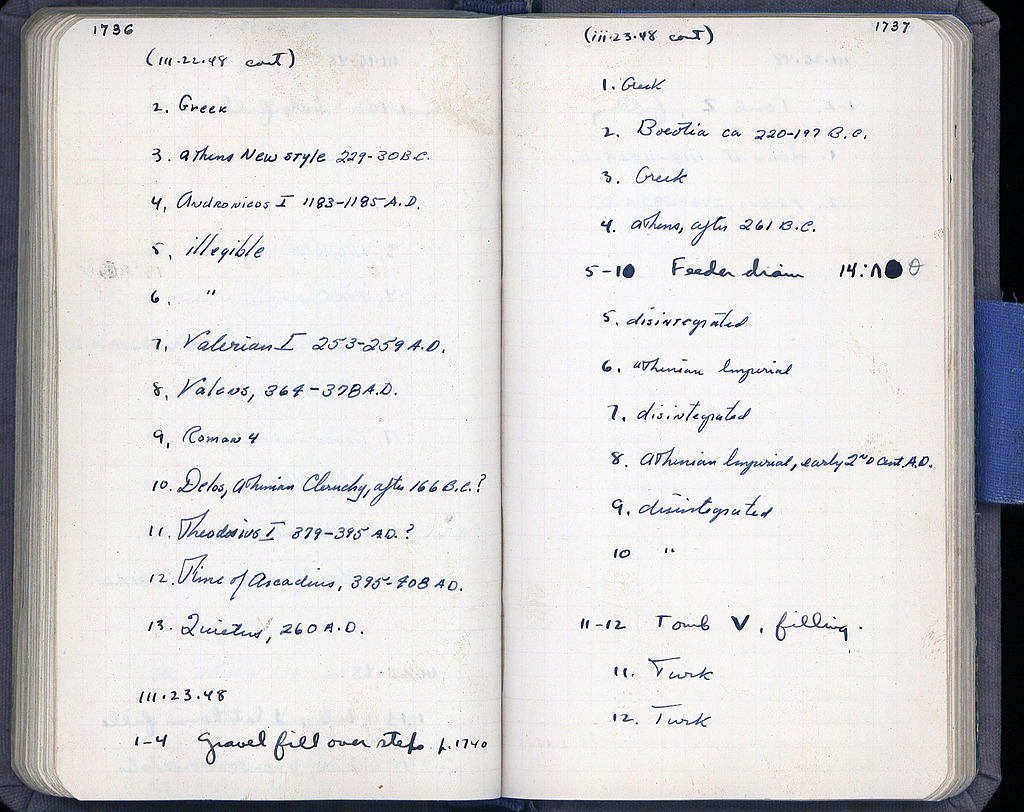 1736
(III.22.48 cont)
2. Greek
3. Athens New style 229-30 B.C.
4. Andronicos I 1183-1185 A.D.
5. illegible
6. "
7. Valerian I 253-259 A.D.
8. Valens, 364-378 A.D.
9. Roman 4
10. Delos, Athenian Cleruchy, after 166 B.C.?
11. Theodosius I 379-395 A.D.?
12. Time of Arcadius, 395-408 A.D.
13. Quietus, 260 A.D.
III.23.48
1-4 Gravel fill over steps p.1740
1737
(iii.23.48 cont)
1. Greek
2. Boeotia ca 220-197 B.C.
3. Greek
4. Athens, after 261 B.C.
5-10 Feeder drain 14:
5. disintegrated
6. Athenian Imperial
7. disintegrated
8. Athenian Imperial, early 2nd cent. A.D.
9. disintegrated
10 "
11-12 Tomb V, filling.
11. Turk
12. Turk